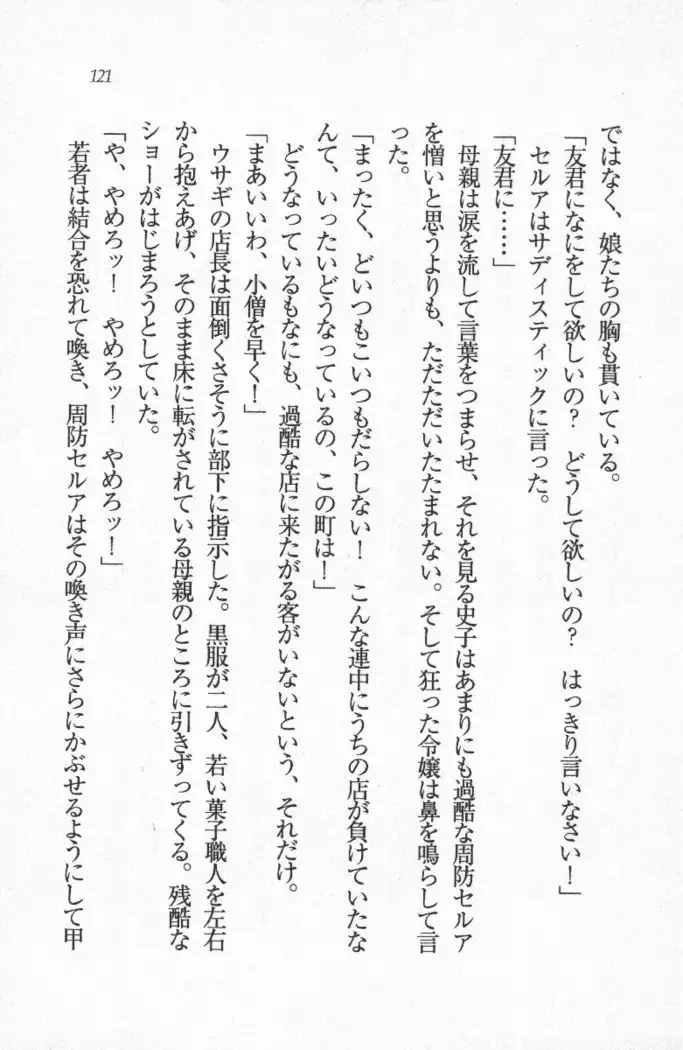 121
ではなく、娘たちの胸も貫いている。
「友君になにをして欲しいの？　どうして欲しいの？　はっきり言いなさい！」
セルアはサディスティックに言った。
「友君に……」
母親は涙を流して言葉をつまらせ、それを見る史子はあまりにも過酷な周防セルア
を憎いと思うよりも、ただただいたたまれない。そして狂った令嬢は鼻を鳴らして言
った。
「まったく、どいつもこいつもだらしない！　こんな連中にうちの店が負けていたな
んて、いったいどうなっているの、この町は！」
どうなっているもなにも、過酷な店に来たがる客がいないという、それだけ。
「まあいいわ、小僧を早く！」
ウサギの店長は面倒くさそうに部下に指示した。黒服が二人、若い菓子職人を左右
から抱えあげ、そのまま床に転がされている母親のところに引きずってくる。残酷な
ショーがはじまろうとしていた。
「や、やめろッ！　やめろッ！　やめろッ！」
若者は結合を恐れて喚き、周防セルアはその喚き声にさらにかぶせるようにして甲